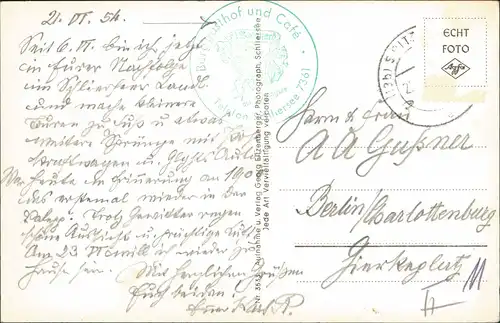 21. VI. 54.
Seit 6. VI. bin ich jetzt
in Eurer Nachfolge
im Schlierseer Landl.
und mache kleinere
Touren zu Fuß u. etwas
weitere Sprünge mit
Kraftwagen u. Auto
heute in Erinnerung an 190
das erstemal wieder in der
Valepp. Trotz Gewitterregen
schöne Aussicht u. prächtige Luft
Am 23. VI. will ich wieder zu
Hause sein.
Mit herzlichen Grüßen
Euch beiden!
Euer Karl P.
Gasthof und Café
Telefon Schliersee 7361
Nr. 3635 Aufnahme u. Verlag Georg Eilzenberger, Photograph, Schliersee
Jede Art Vervielfältigung verboten
ECHT
FOTO
Agfa
Herrn & Frau
A A Gußner
Berlin/Charlottenburg
Zierkeplatz
11